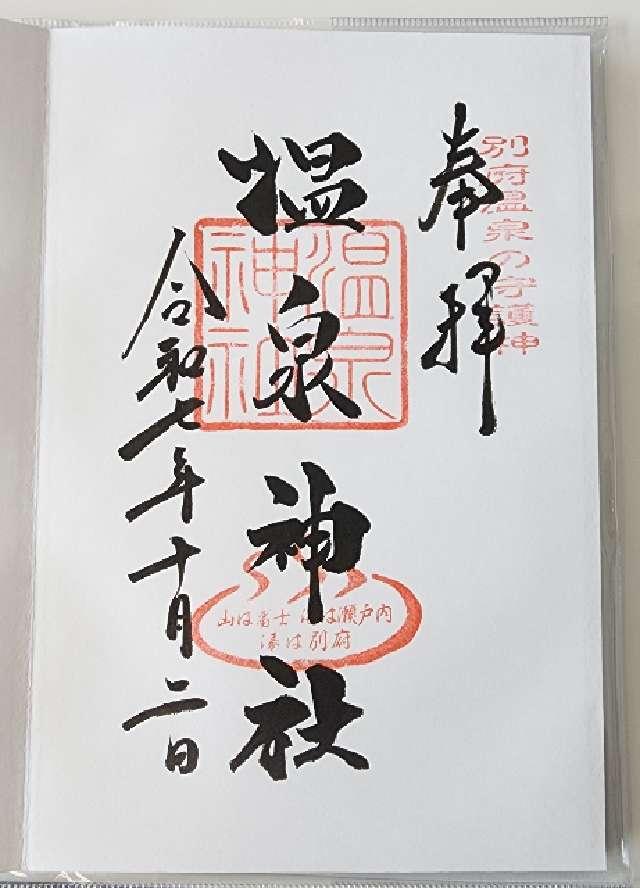 別府温泉の守護神
奉拝
温泉神社
温泉
神社
山は富士 海は瀬戸内
湯は別府
令和七年十月二日